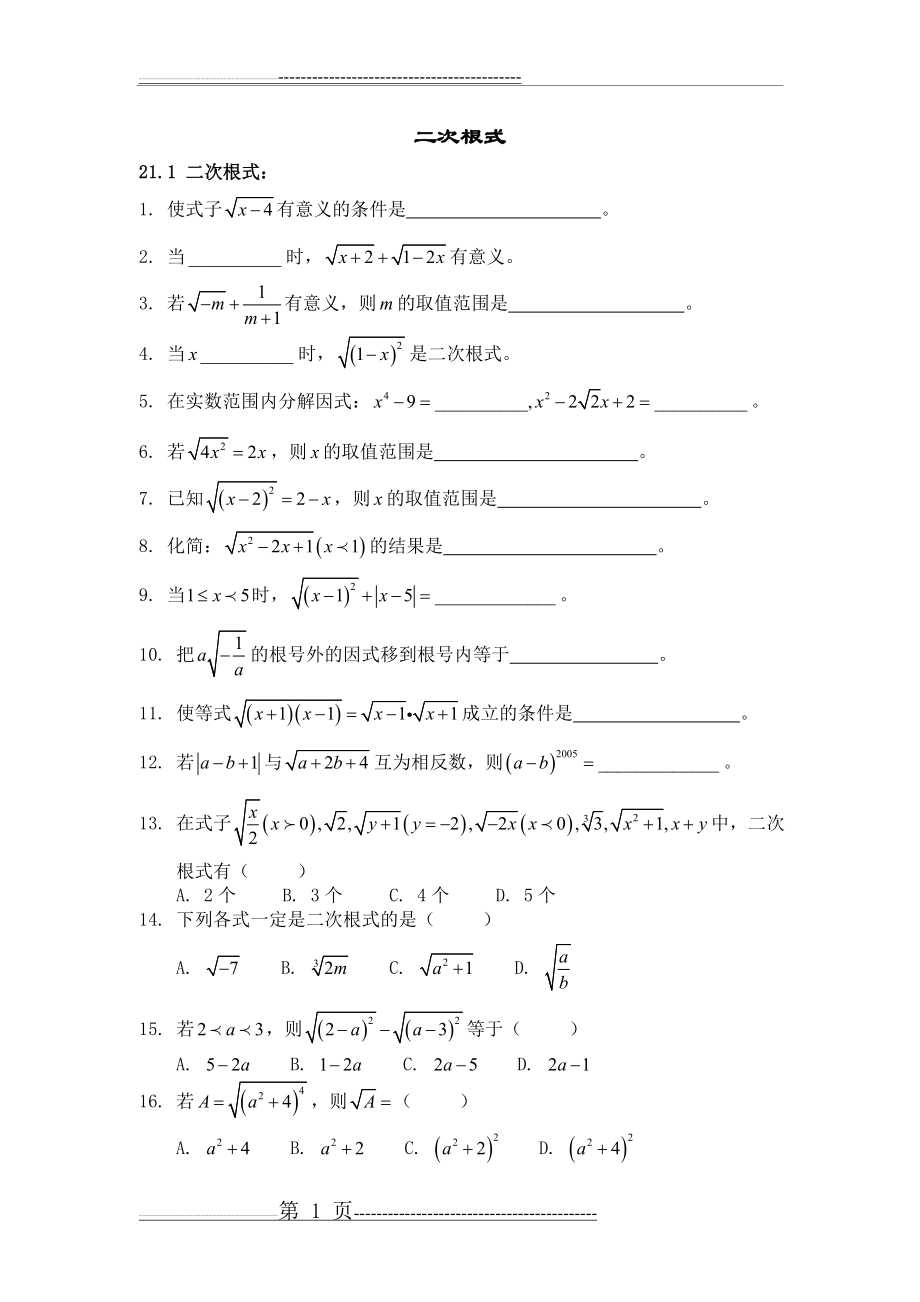 二次根式
21.1 二次根式:
1. 使式子√(x−4)有意义的条件是____________________。
2. 当__________时，√(x+2)+√(1−2x)有意义。
3. 若√(−m)+1/(m+1)有意义，则m的取值范围是____________________。
4. 当x__________时，√((1−x)²)是二次根式。
5. 在实数范围内分解因式：x⁴−9=__________,x²−2√2x+2=__________。
6. 若√(4x²)=2x，则x的取值范围是____________________。
7. 已知√((x−2)²)=2−x，则x的取值范围是____________________。
8. 化简：√(x²−2x+1)(x≺1)的结果是____________________。
9. 当1≤x≺5时，√((x−1)²)+|x−5|=_____________。
10. 把a√(−1/a)的根号外的因式移到根号内等于_______________。
11. 使等式√((x+1)(x−1))=√(x−1)•√(x+1)成立的条件是________________。
12. 若|a−b+1|与√(a+2b+4)互为相反数，则(a−b)²⁰⁰⁵=_____________。
13. 在式子√(x/2)(x≻0),√2,√(y+1)(y=−2),√(−2x)(x≺0),∛3,√(x²+1),x+y中，二次
根式有（　　）
A. 2个 B. 3个 C. 4个 D. 5个
14. 下列各式一定是二次根式的是（　　）
A. √(−7) B. ∛(2m) C. √(a²+1) D. √(a/b)
15. 若2≺a≺3，则√((2−a)²)−√((a−3)²)等于（　　）
A. 5−2a B. 1−2a C. 2a−5 D. 2a−1
16. 若A=√((a²+4)⁴)，则√A=（　　）
A. a²+4 B. a²+2 C. (a²+2)² D. (a²+4)²
第 1 页